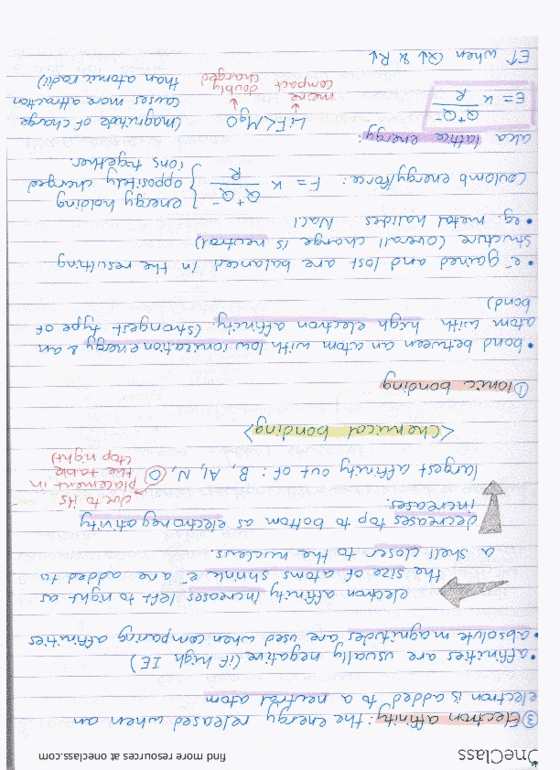 OneClass find more resources at oneclass.com
③ Electron affinity: the energy released when an
electron is added to a neutral atom
• affinities are usually negative (if high IE)
• absolute magnitudes are used when comparing affinities
electron affinity increases left to right as
the size of atoms shrink e⁻ are added to
a shell closer to the nucleus.
decreases top to bottom as electronegativity
increases.
largest affinity out of: B, Al, N, O
due to its
placement in
the table
(top right)
<Chemical bonding>
① Ionic bonding
• bond between an atom with low ionization energy & an
atom with high electron affinity (strongest type of
bond)
• e⁻ gained and lost are balanced in the resulting
structure (overall charge is neutral)
• eg. metal halides NaCl
Coulomb energy/force: F = k Q⁺Q⁻/R } energy holding
oppositely charged
ions together
aka lattice energy:
E = k Q⁺Q⁻/R
LiF < MgO
more
compact
doubly
charged
(magnitude of charge
causes more attraction
than atomic radii)
E↑ when Q↓ & R↓